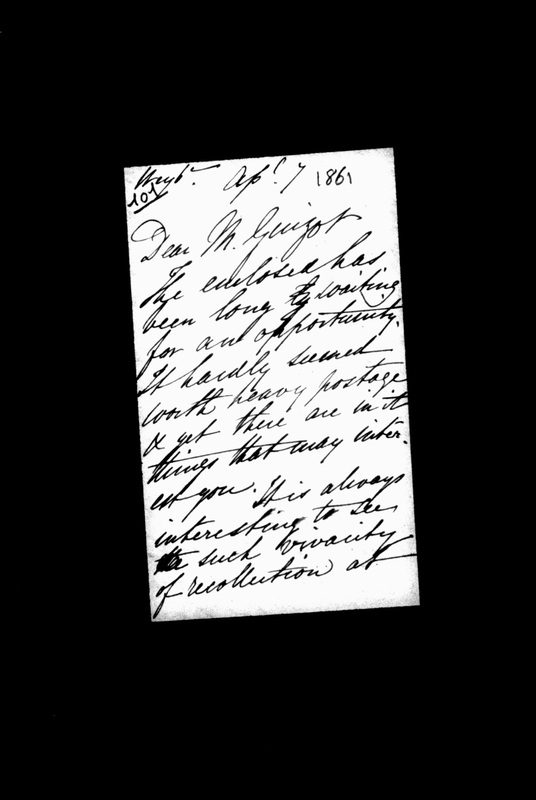 Weyb. Ap. 7 1861
101
Dear M. Guizot
The enclosed has
been long waiting
for an opportunity.
It hardly seemed
worth heavy postage
& yet there are in it
things that may inter-
est you. It is always
interesting to see
such vivacity
of recollection at